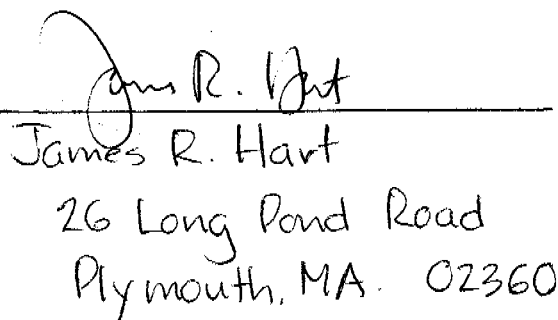 James R. Hart
James R. Hart
26 Long Pond Road
Plymouth, MA. 02360